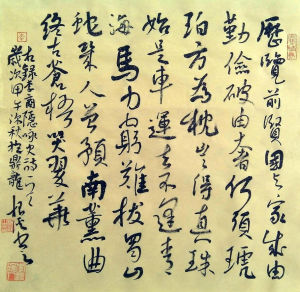 歷覽前賢國與家成由
勤儉破由奢何須琥
珀方為枕豈得真珠
始是車運去不逢青
海馬力窮難拔蜀山
蛇幾人曾預南薰曲
終古蒼梧哭翠華
右錄李商隱詠史詩一首
歲次甲午秋於鼎龍